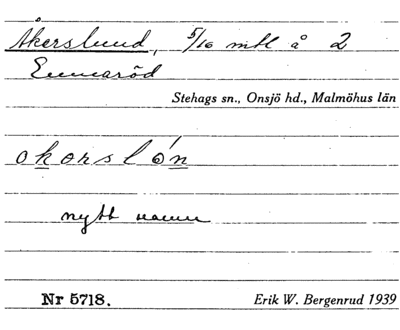 Åkerslund, 5/16 mtl å 2
Ennaröd
Stehags sn., Onsjö hd., Malmöhus län
okorslón
nytt namn
Nr 5718. Erik W. Bergenrud 1939